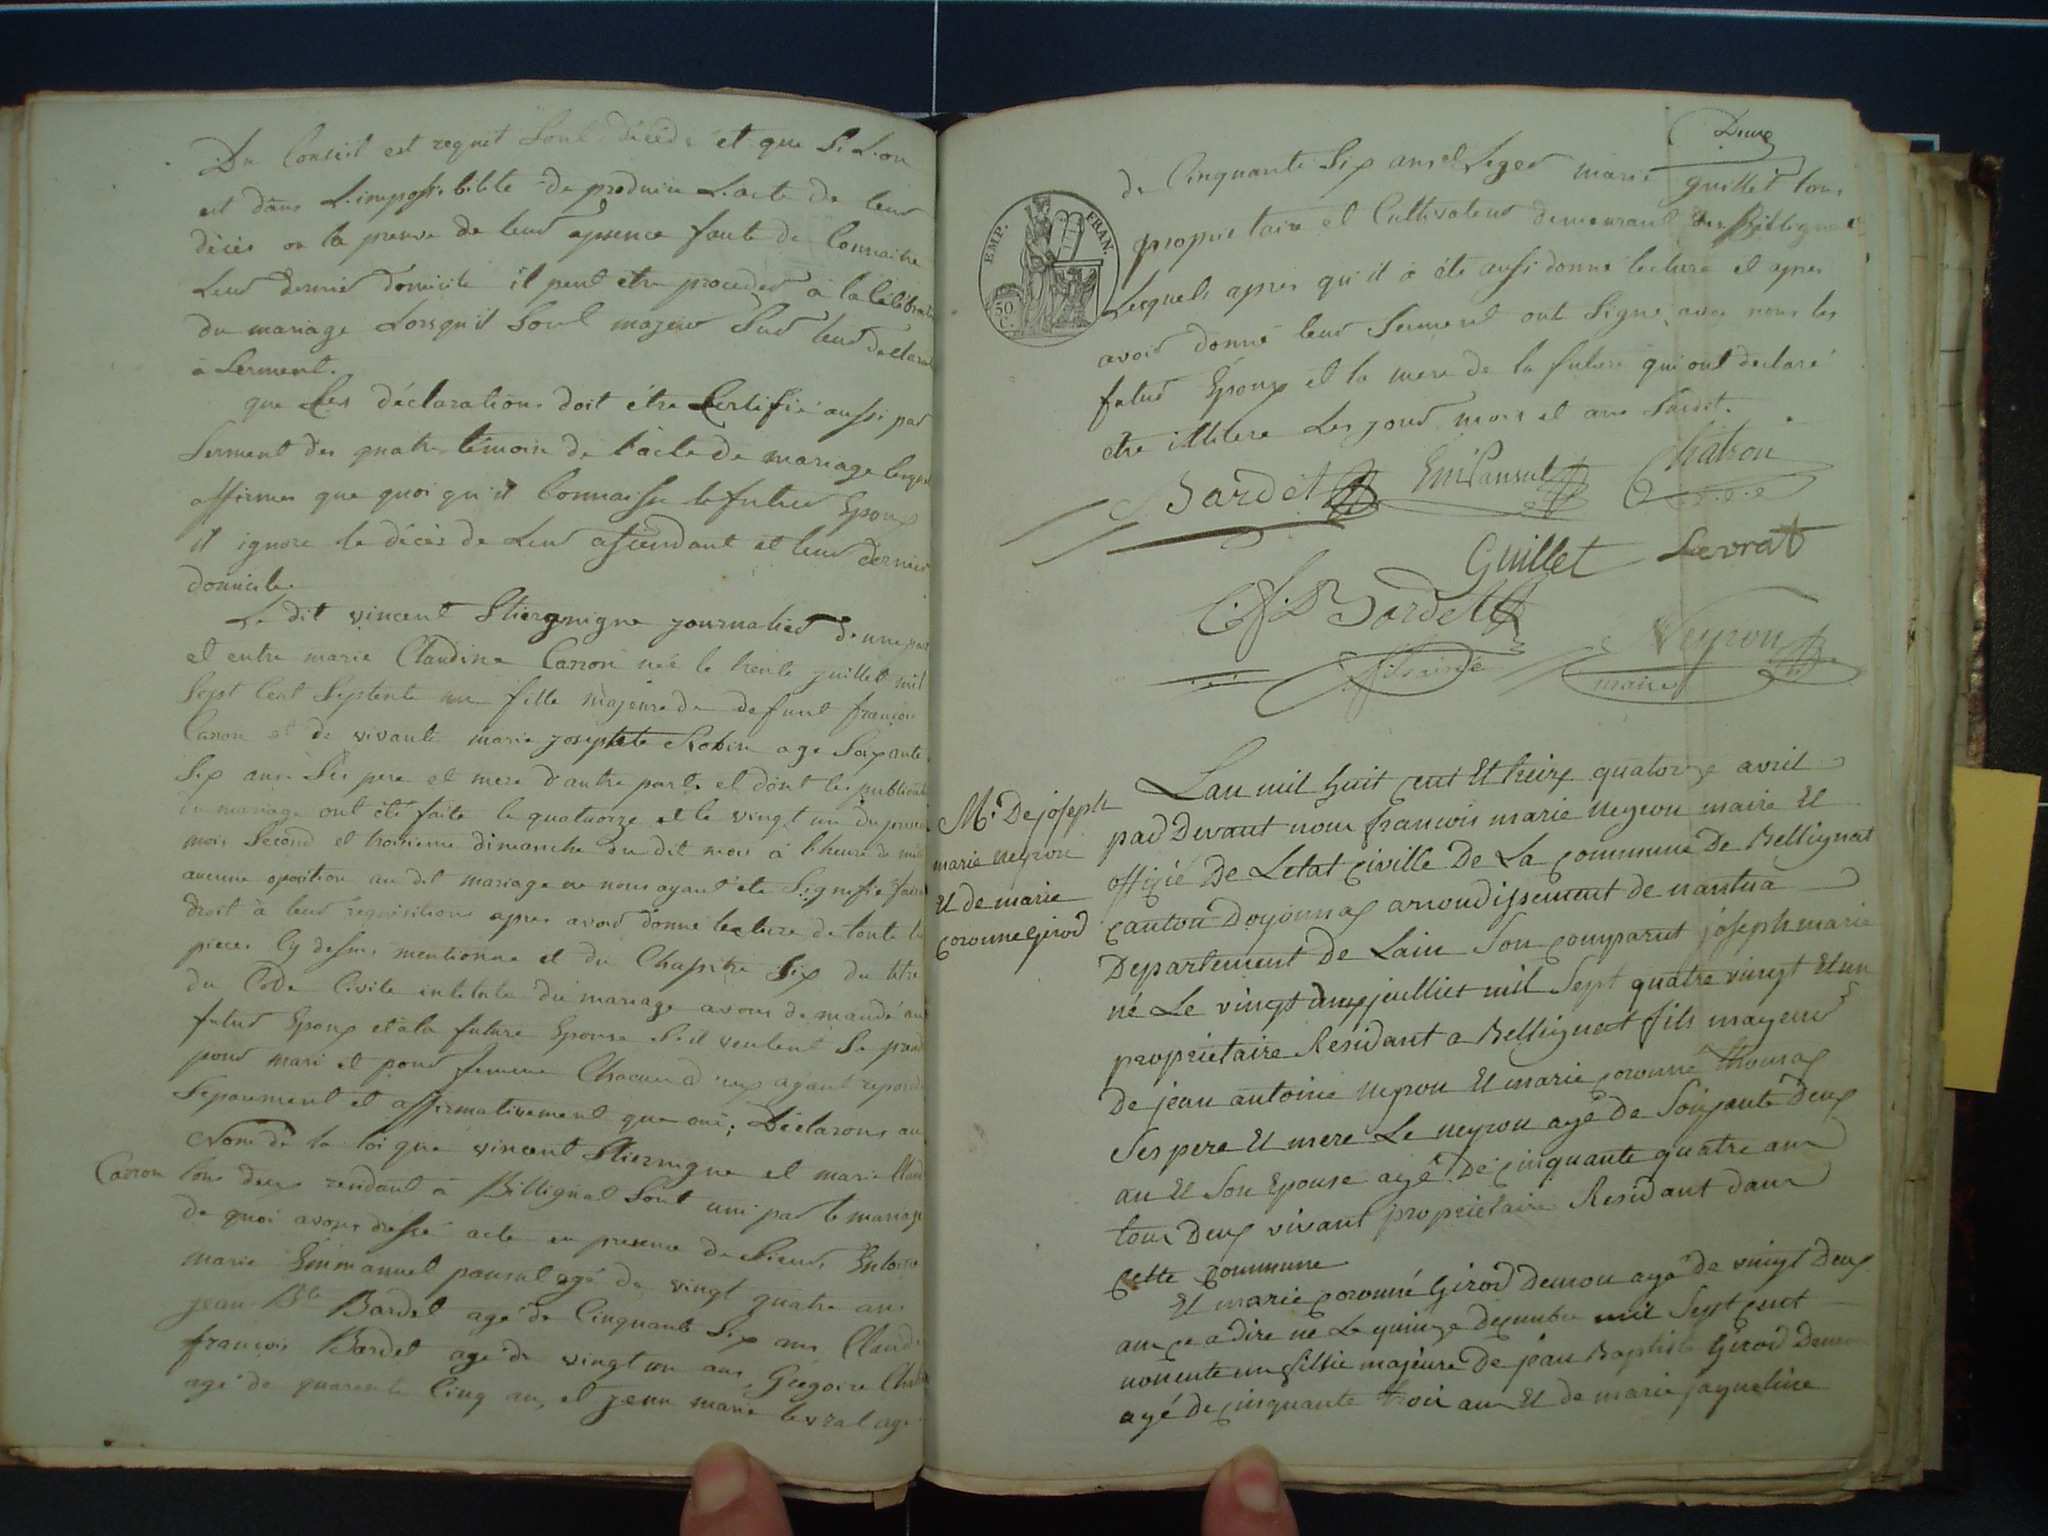 Du Conseil est requit Sont décédé et que Si L'on
est dans L'impossibilité de produire L'acte de leur
décès ou la preuve de leur apsence faute de Connaitre
Leur dernier domicile il peut etre proceder à la Célébration
du mariage Lorsqu'il Sont majeur Sur leur declaration
a Serment.
que Les déclarations doit être Certifié aussi par
Serment des quatre témoin de l'acte de mariage lesquels
affirmes que quoi qu'il Connaisse le futur Epoux
il ignore le décès de Leur assendant et leur dernier
domicile.
Le dit vincent Stiermigne journalier d'une part
et entre marie Claudine Carron née le trente juillet mil
Sept Cent Septente un fille majeure de defunt françois
Carron et de vivante marie josephte Robin age Soixante
Six ans Ses pere et mere d'autre part, et dont les publications
du mariage ont été faite le quatorze et le vingt un du present
mois Second et troisieme dimanche du dit mois à l'heure de midi
aucune oposition au dit mariage ne nous ayant été Signifié faisant
droit à leur requisition apres avoir donné lecture de toute les
pieces Cy dessus mentionné et du Chapitre Six du titre
du Code Civile intitulé du mariage avons demandé au
futur Epoux et à la future Epouse S'il veulent Se prendre
pour mari et pour femme Chacun d'eux ayant repondu
Séparement et affirmativement que oui; Déclarons au
Nom de la loi que vincent Stiermigne et marie Claudine
Carron tous deux rendant à Billignat Sont uni par le mariage
de quoi avons dressé acte en presence de Sieurs
marie Emmanuel pansut agé de vingt quatre ans
jean Bte Bardet agé de Cinquante Six ans Claude
françois Bardet agé de vingt un ans, Grégoire
agé de quarente Cinq an, et jean marie levrat agé
Deux
de Cinquante Six ans et Leger marie guillet tous
propriétaire et Cultivateur demeurant a Billignat
EMP. FRAN.
50 C.
Lesquels apres qu'il a été aussi donné lecture et apres
avoir donné leur Serment ont Signé avec nous les
futur Epoux et la mere de la future qui ont declaré
etre illitere Les jour mois et an Susdit.
Bardet Em Pansut Chatron
Guillet Levrat
C. f. Bardet
Neyron
maire
Lan mil huit cent Et treize quatorze avril
M. De joseph
marie neyron
Et de marie
coronne Girod
par Devant nous francois marie neyron maire Et
offigié De Letat Civille De La Commune De Bellignat
Canton Doyonnax arrondissement de nantua
Departement De Lain Son comparut joseph marie
né Le vingt deux juilliet mil Sept quatre vingt Et un
proprietaire Residant a Bellignat fils mayeur
De jean antoine neyron Et marie coronne thomas
Ses pere Et mere Le neyron agé De Soixante Deux
an Et Son Epouse agé De cinquante quatre ans
tous Deux vivant proprietaire Residant dans
Cette Commune
Et marie coronné Girod Demon agé de vingt Deux
ans ce a dire né Le quinze Decembre mil Sept cent
nonente un fillie majeure De jean Baptiste Girod Demon
agé De cinquante trois ans Et de marie jaqueline